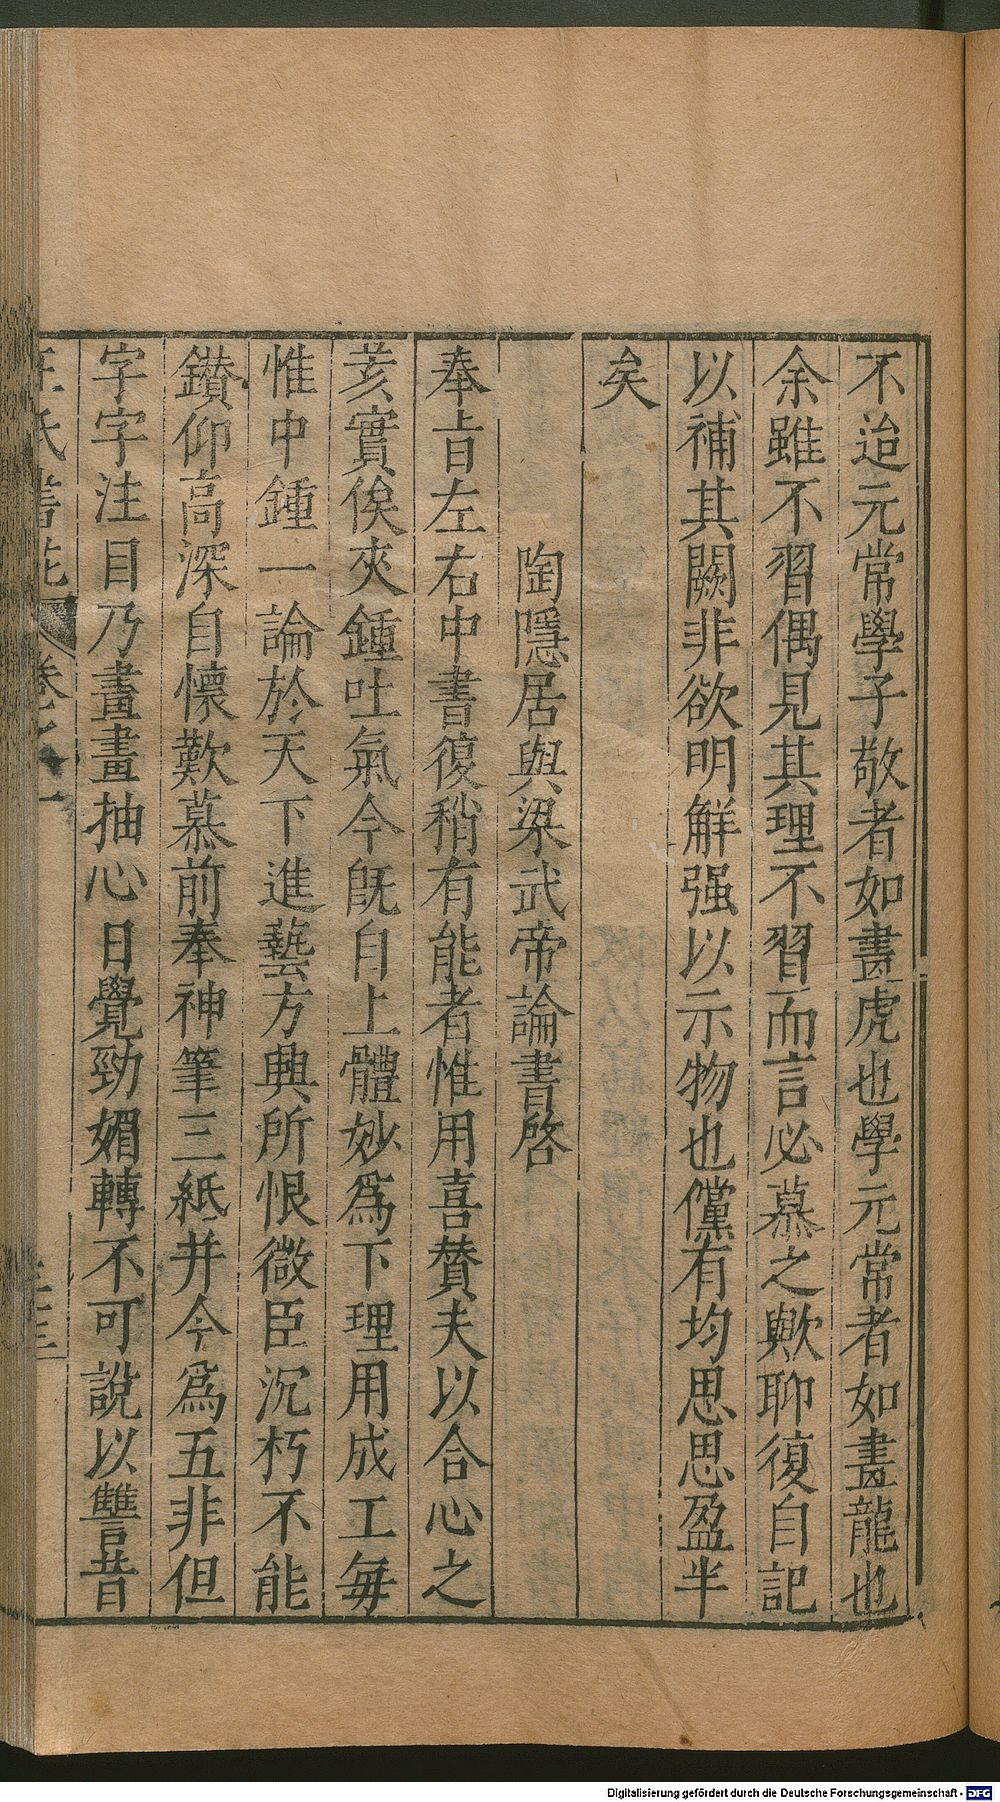 不迨元常學子敬者如畫虎也學元常者如畫龍也
余雖不習偶見其理不習而言必慕之歟聊復自記
以補其闕非欲明解强以示物也儻有均思思盈半
矣
陶隱居與梁武帝論書啓
奉旨左右中書復稍有能者惟用喜贊夫以合心之
荄實俟夾鍾吐氣今旣自上體妙爲下理用成工毎
惟中鍾一論於天下進藝方典所恨微臣沉朽不能
鑚仰高深自懷歎慕前奉神筆三紙并今爲五非但
字字注目乃畫畫抽心日覺勁媚轉不可說以讐昔
氏書苑 卷之一
Digitalisierung gefördert durch die Deutsche Forschungsgemeinschaft - DFG